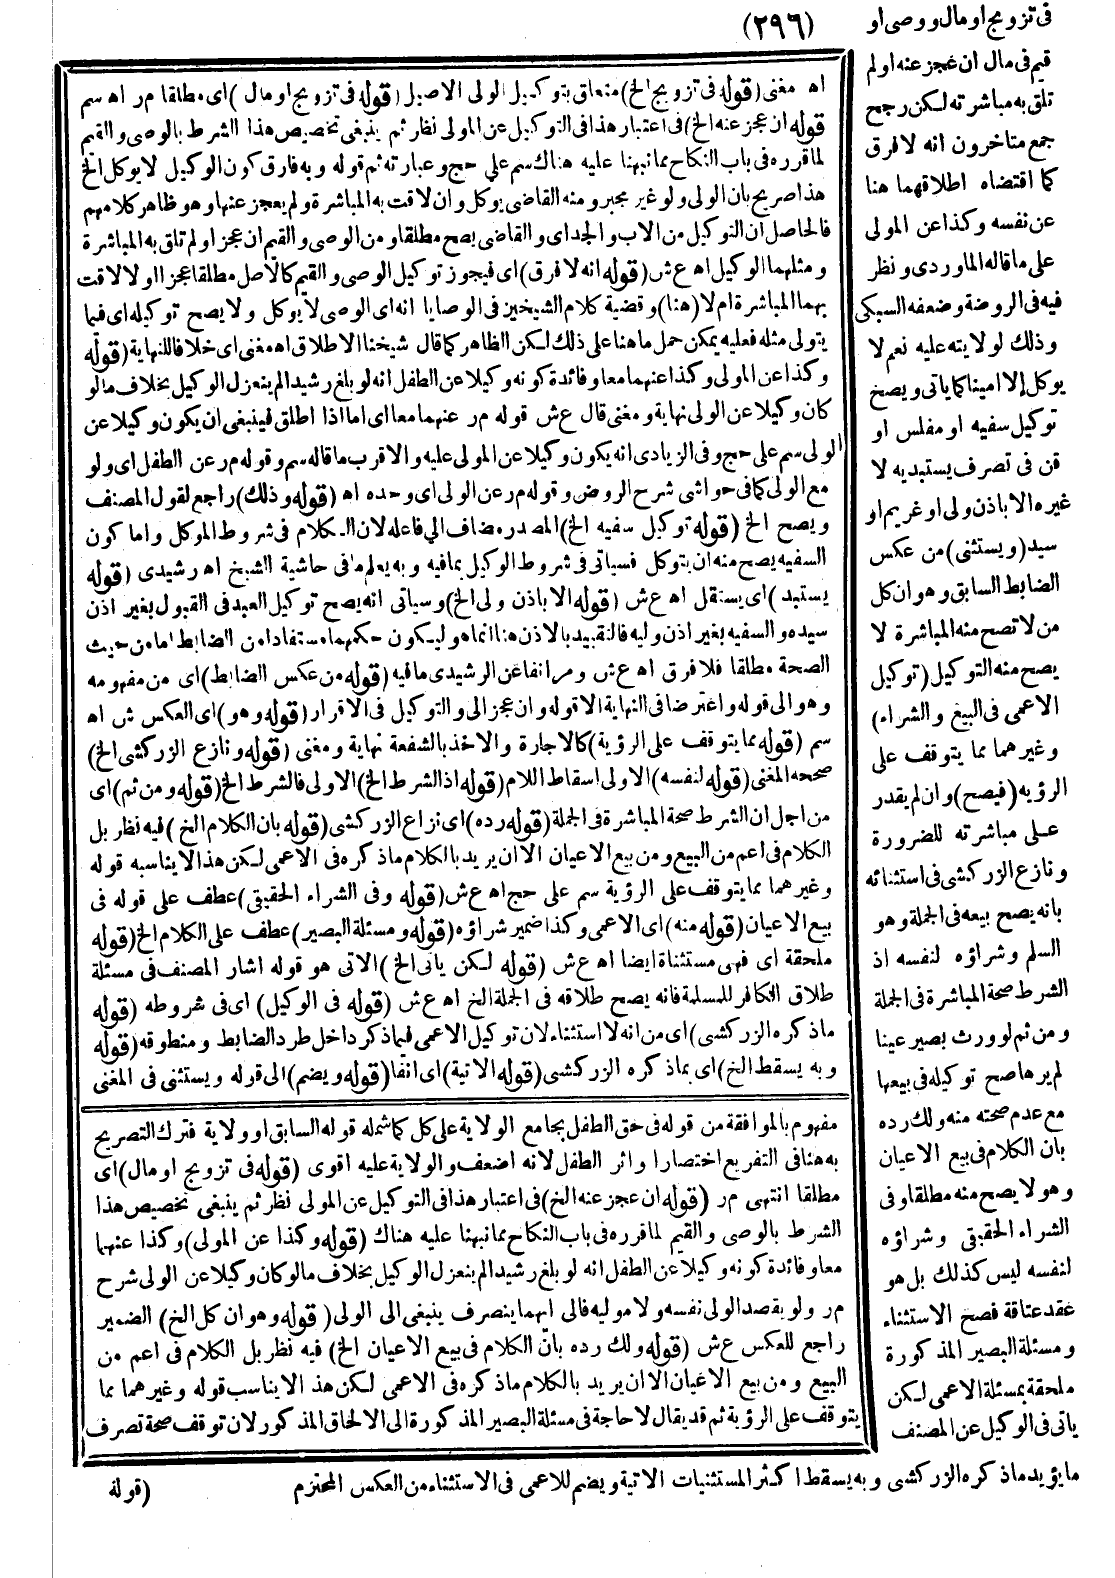 (٢٩٦)
فى تزويج او مال ووصى او
قيم فى مال ان عجز عنه او لم
تلق به مباشرته لكن رجح
جمع متاخرون انه لا فرق
كما اقتضاه اطلاقهما هنا
عن نفسه وكذا عن المولى
على ما قاله الماوردى ونظر
فيه فى الروضة وضعفه السبكى
وذلك لولايته عليه نعم لا
يوكل إلا امينا كما ياتى ويصح
توكيل سفيه او مفلس او
قن فى تصرف يستبد به لا
غيره الا باذن ولى او غريم او
سيد (ويستثنى) من عكس
الضابط السابق وهو ان كل
من لا تصح منه المباشرة لا
يصح منه التوكيل (توكيل
الاعمى فى البيع والشراء)
وغيرهما مما يتوقف على
الرؤيه (فيصح) وان لم يقدر
على مباشرته للضرورة
ونازع الزركشى فى استثنائه
بانه يصح بيعه فى الجملة وهو
السلم وشراؤه لنفسه اذ
الشرط صحة المباشرة فى الجملة
ومن ثم لو ورث بصير عينا
لم يرها صح توكيله فى بيعها
مع عدم صحته منه ولك رده
بان الكلام فى بيع الاعيان
وهو لا يصح منه مطلقا وفى
الشراء الحقيقى وشراؤه
لنفسه ليس كذلك بل هو
عقد عتاقة فصح الاستثناء
ومسئلة البصير المذكورة
ملحقة بمسئلة الاعمى لكن
ياتى فى الوكيل عن المصنف
ما يؤيد ما ذكره الزركشى وبه يسقط اكثر المستثنيات الاتية ويضم للاعمى فى الاستثناء من العكس المحترم
اه مغنى (قوله فى تزويج الخ) متعلق بتوكيل الولى الاصيل (قوله فى تزويج او مال) اى مطلقا م ر اه سم
قوله ان عجز عنه الخ) فى اعتبار هذا فى التوكيل عن المولى نظار ثم ينبغى تخصيص هذا الشرط بالوصى والقيم
لما قرره فى باب النكاح بما نبهنا عليه هناك سم علي حج وعبارته ثم قوله وبه فارق كون الوكيل لا يوكل الخ
هذا صريح بان الولى ولو غير مجبر ومنه القاضى يوكل وان لاقت به المباشرة ولم يعجز عنها وهو ظاهر كلامهم
فالحاصل ان التوكيل من الاب والجد اى والقاضى يصح مطلقا ومن الوصى والقيم ان عجز او لم تلق به المباشرة
ومثلهما الوكيل اه ع ش (قوله انه لا فرق) اى فيجوز توكيل الوصى والقيم كالاصل مطلقا عجزا اولا لاقت
بهما المباشرة ام لا (هنا) وقضية كلام الشيخين فى الوصايا انه اى الوصى لا يوكل ولا يصح توكيله اى فيما
يتولى مثله فعليه يمكن حمل ما هنا على ذلك لكن الظاهر كما قال شيخنا الاطلاق اه مغنى اى خلافا للنهاية (قوله
وكذا عن المولى وكذا عنهما معا وفائدة كونه وكيلا عن الطفل انه لو بلغ رشيدا لم ينعزل الوكيل بخلاف ما لو
كان وكيلا عن الولى نهاية ومغنى قال ع ش قوله م ر عنهما معا اى اما اذا اطلق فينبغى ان يكون وكيلا عن
الولى سم على حج وفى الزيادى انه يكون وكيلا عن المولى عليه والاقرب ما قاله سم وقوله م ر عن الطفل اى ولو
مع الولى كما فى حواشى شرح الروض وقوله م ر عن الولى اى وحده اه (قوله وذلك) راجع لقول المصنف
ويصح الخ (قوله توكيل سفيه الخ) المصدر مضاف الي فاعله لان الكلام فى شروط الموكل واما كون
السفيه يصح منه ان يتوكل فسياتى فى شروط الوكيل بما فيه وبه يعلم ما فى حاشية الشيخ اه رشيدى (قوله
يستبد) اى يستقل اه ع ش (قوله الا باذن ولى الخ) وسياتى انه يصح توكيل العبد فى القبول بغير اذن
سيده والسفيه بغير اذن وليه فالتقييد بالاذن هنا انما هو ليكون حكمهما مستفادا من الضابط اما من حيث
الصحة مطلقا فلا فرق اه ع ش ومر انفا عن الرشيدى ما فيه (قوله من عكس الضابط) اى من مفهومه
وهو الى قوله واعترضا فى النهاية الا قوله وان عجز الى والتوكيل فى الاقرار (قوله وهو) اى العكس ش اه
سم (قوله مما يتوقف على الرؤية) كالاجارة والاخذ بالشفعة نهاية ومغنى (قوله ونازع الزركشى الخ)
صححه المغنى (قوله لنفسه) الاولى اسقاط اللام (قوله اذ الشرط الخ) الاولى فالشرط الخ (قوله ومن ثم) اى
من اجل ان الشرط صحة المباشرة فى الجملة (قوله رده) اى نزاع الزركشى (قوله بان الكلام الخ) فيه نظر بل
الكلام فى اعم من البيع ومن بيع الاعيان الا ان يريد بالكلام ما ذكره فى الاعمى لكن هذا لا يناسبه قوله
وغيرهما مما يتوقف على الرؤية سم على حج اه ع ش (قوله وفى الشراء الحقيقى) عطف على قوله فى
بيع الاعيان (قوله منه) اى الاعمى وكذا ضمير شراؤه (قوله ومسئلة البصير) عطف على الكلام الخ (قوله
ملحقة اى فهى مستثناة ايضا اه ع ش (قوله لكن ياتى الخ) الاتى هو قوله اشار المصنف فى مسئلة
طلاق الكافر للمسلمة فانه يصح طلاقه فى الجملة الخ اه ع ش (قوله فى الوكيل) اى فى شروطه (قوله
ما ذكره الزركشى) اى من انه لا استثناء لان توكيل الاعمى فيما ذكر داخل طرد الضابط ومنطوقه (قوله
وبه يسقط الخ) اى بما ذكره الزركشى (قوله الاتية) اى انفا (قوله ويضم) الى قوله ويستثنى فى المغنى
مفهوم بالموافقة من قوله فى حق الطفل بجامع الولاية على كل كما شمله قوله السابق او ولاية فترك التصريح
به هنا فى التفريع اختصارا واثر الطفل لانه اضعف والولاية عليه اقوى (قوله فى تزويج او مال) اى
مطلقا انتهى م ر (قوله ان عجز عنه الخ) فى اعتبار هذا فى التوكيل عن المولى نظر ثم ينبغى تخصيص هذا
الشرط بالوصى والقيم لما قرره فى باب النكاح بما نبهنا عليه هناك (قوله وكذا عن المولى) وكذا عنهما
معا وفائدة كونه وكيلا عن الطفل انه لو بلغ رشيدا لم ينعزل الوكيل بخلاف ما لو كان وكيلا عن الولى شرح
م ر ولو بقصد الولى نفسه ولا موليه فالى ايهما ينصرف ينبغى الى الولى (قوله وهو ان كل الخ) الضمير
راجع للعكس ع ش (قوله ولك رده بان الكلام فى بيع الاعيان الخ) فيه نظر بل الكلام فى اعم من
البيع ومن بيع الاعيان الا ان يريد بالكلام ما ذكره فى الاعمى لكن هذا لا يناسب قوله وغيرهما مما
يتوقف على الرؤية ثم قد يقال لا حاجة فى مسئلة البصير المذكورة الى الالحاق المذكور لان توقف صحة تصرف
(قوله